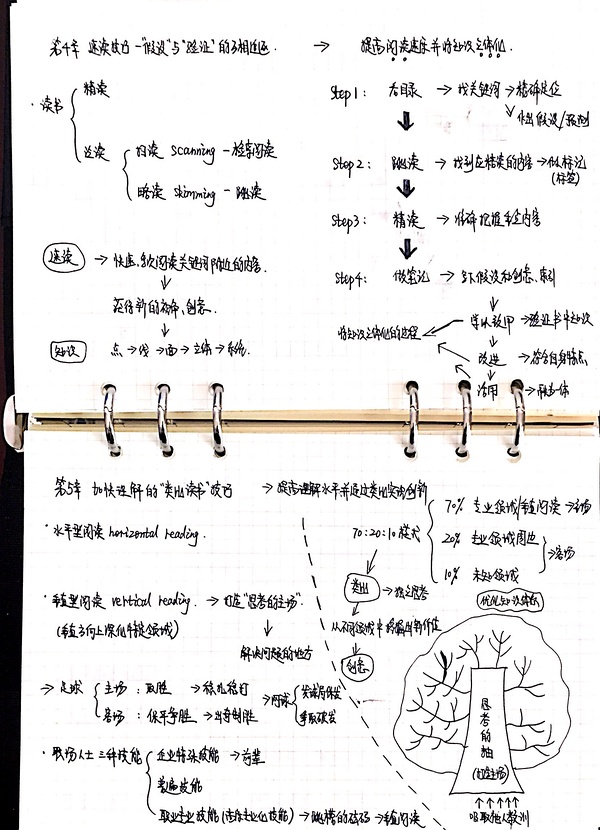 第4章 速读技巧-"假设"与"验证"的 → 提高阅读速度并将知识立体化.
· 读书
精读
速读
scanning - 检索阅读
略读 skimming - 跳读
速读 → 快速、多次阅读关键词附近的内容.
↓
↓
知识 点 → 线 → 面 → 立体 → 系统.
Step1: 看目录 → 找关键词 → 精确定位
作出假设/预测
Step2: 跳读 → 找到应精读的内容 → 做标记
(标签)
Step3: 精读 → 准确把握 内容
Step4: 做笔记 → 写下假设和创意、索引
将知识立体化的过程
学以致用 → 验证书中知识
改进 → 符合自身特点
活用 → 融为一体
第5章 加快理解的"类比读书"技巧 → 提高理解水平并通过类比实现创新
· 水平型阅读 horizontal reading.
70:20:10模式
70% 专业领域/垂直阅读 → 主场
20% 专业领域周边
10% 未知领域
→ 客场
类比 → 独立思考
从不同领域中 新价值
创意
· 垂直型阅读 vertical reading. → 打造"思考的主场".
(垂直方向上深化 领域)
↓
解决问题的地方
→ 足球
主场: 取胜 → 稳扎稳打
客场: 保平争胜 → 出奇制胜
→ 网球
发球局保发
争取破发
· 职场人士三种技能
企业特殊技能 → 前辈
普遍技能
职业专业技能 → 跳槽的砝码 → 垂直阅读
优化知识体系
思考的轴
(打造主场)
吸取他人教训